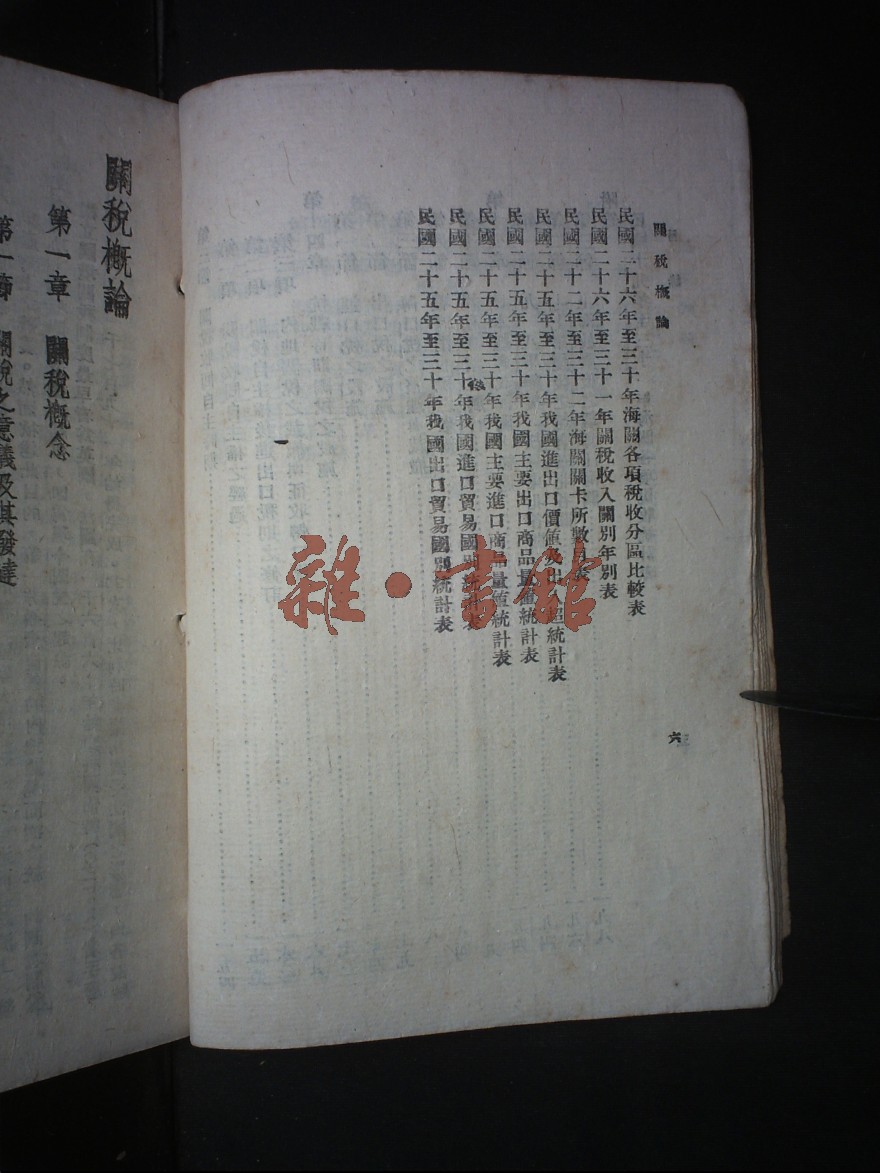 關稅概論
民國二十六年至三十年海關各項稅收分區比較表
民國二十六年至三十一年關稅收入關別年別表
民國二十二年至三十二年海關關卡所數目表
民國二十五年至三十年我國進出口價值及出入超統計表
民國二十五年至三十年我國主要出口商品量值統計表
民國二十五年至三十年我國主要進口商品量值統計表
民國二十五年至三十年我國進口貿易國別統計表
民國二十五年至三十年我國出口貿易國別統計表
六
關稅概論
第一章 關稅概念
第一節 關稅之意義及其發達
雜·書館